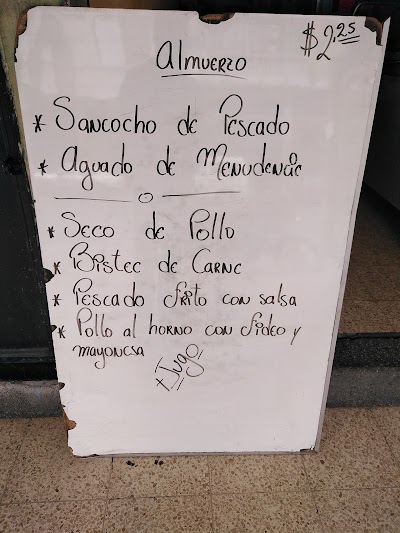 $2.25
Almuerzo
* Sancocho de Pescado
* Aguado de Menudencia
o
* Seco de Pollo
* Bistec de Carne
* Pescado frito con salsa
* Pollo al horno con fideo y
mayonesa
+ Jugo